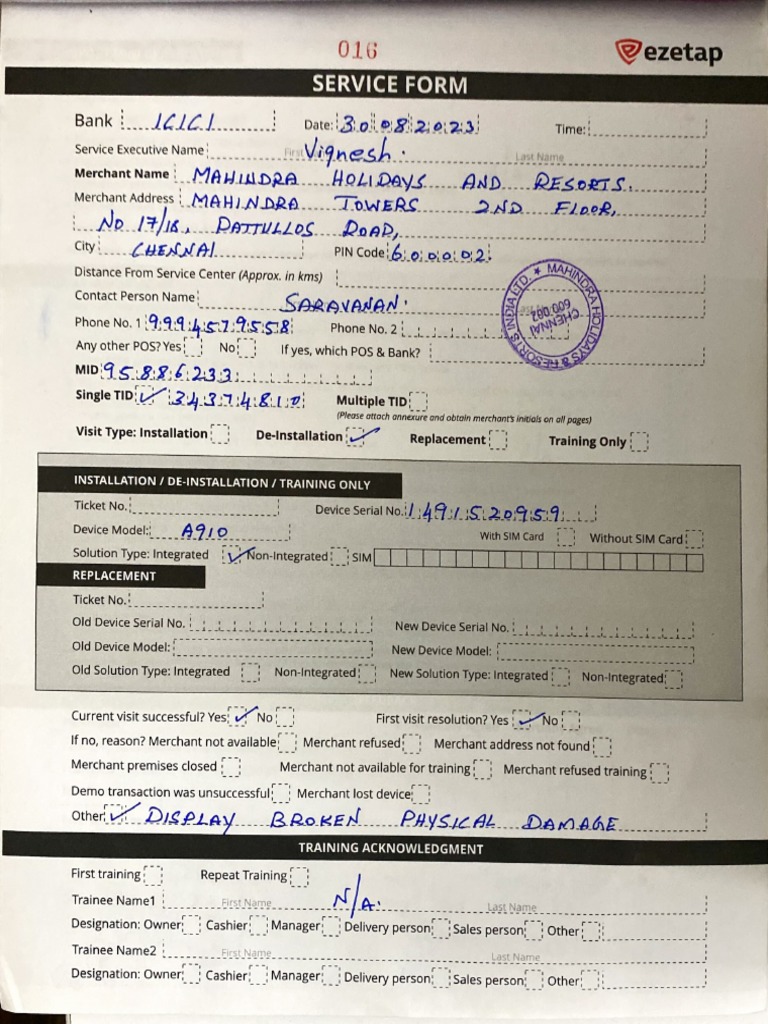 016
ezetap
SERVICE FORM
Bank ICICI Date: 30082023 Time:
Service Executive Name First Vignesh. Last Name
Merchant Name MAHINDRA HOLIDAYS AND RESORTS.
Merchant Address MAHINDRA TOWERS 2ND FLOOR,
No 17/18, PATTULLOS ROAD,
City CHENNAI PIN Code 600002.
Distance From Service Center (Approx. in kms)
MAHINDRA HOLIDAYS & RESORTS INDIA LTD. ★
CHENNAI
600 002
Contact Person Name SARAVANAN.
Phone No. 1 9994579558 Phone No. 2
Any other POS? Yes No If yes, which POS & Bank?
MID 95886233
Single TID ✓ 34374810 Multiple TID
(Please attach annexure and obtain merchant's initials on all pages)
Visit Type: Installation De-Installation ✓ Replacement Training Only
INSTALLATION / DE-INSTALLATION / TRAINING ONLY
Ticket No. Device Serial No. 1491520959
Device Model: A910 With SIM Card Without SIM Card
Solution Type: Integrated ✓ Non-Integrated SIM
REPLACEMENT
Ticket No.
Old Device Serial No. New Device Serial No.
Old Device Model: New Device Model:
Old Solution Type: Integrated Non-Integrated New Solution Type: Integrated Non-Integrated
Current visit successful? Yes ✓ No First visit resolution? Yes ✓ No
If no, reason? Merchant not available Merchant refused Merchant address not found
Merchant premises closed Merchant not available for training Merchant refused training
Demo transaction was unsuccessful Merchant lost device
Other ✓ DISPLAY BROKEN PHYSICAL DAMAGE
TRAINING ACKNOWLEDGMENT
First training Repeat Training
Trainee Name1 First Name N/A. Last Name
Designation: Owner Cashier Manager Delivery person Sales person Other
Trainee Name2 First Name Last Name
Designation: Owner Cashier Manager Delivery person Sales person Other